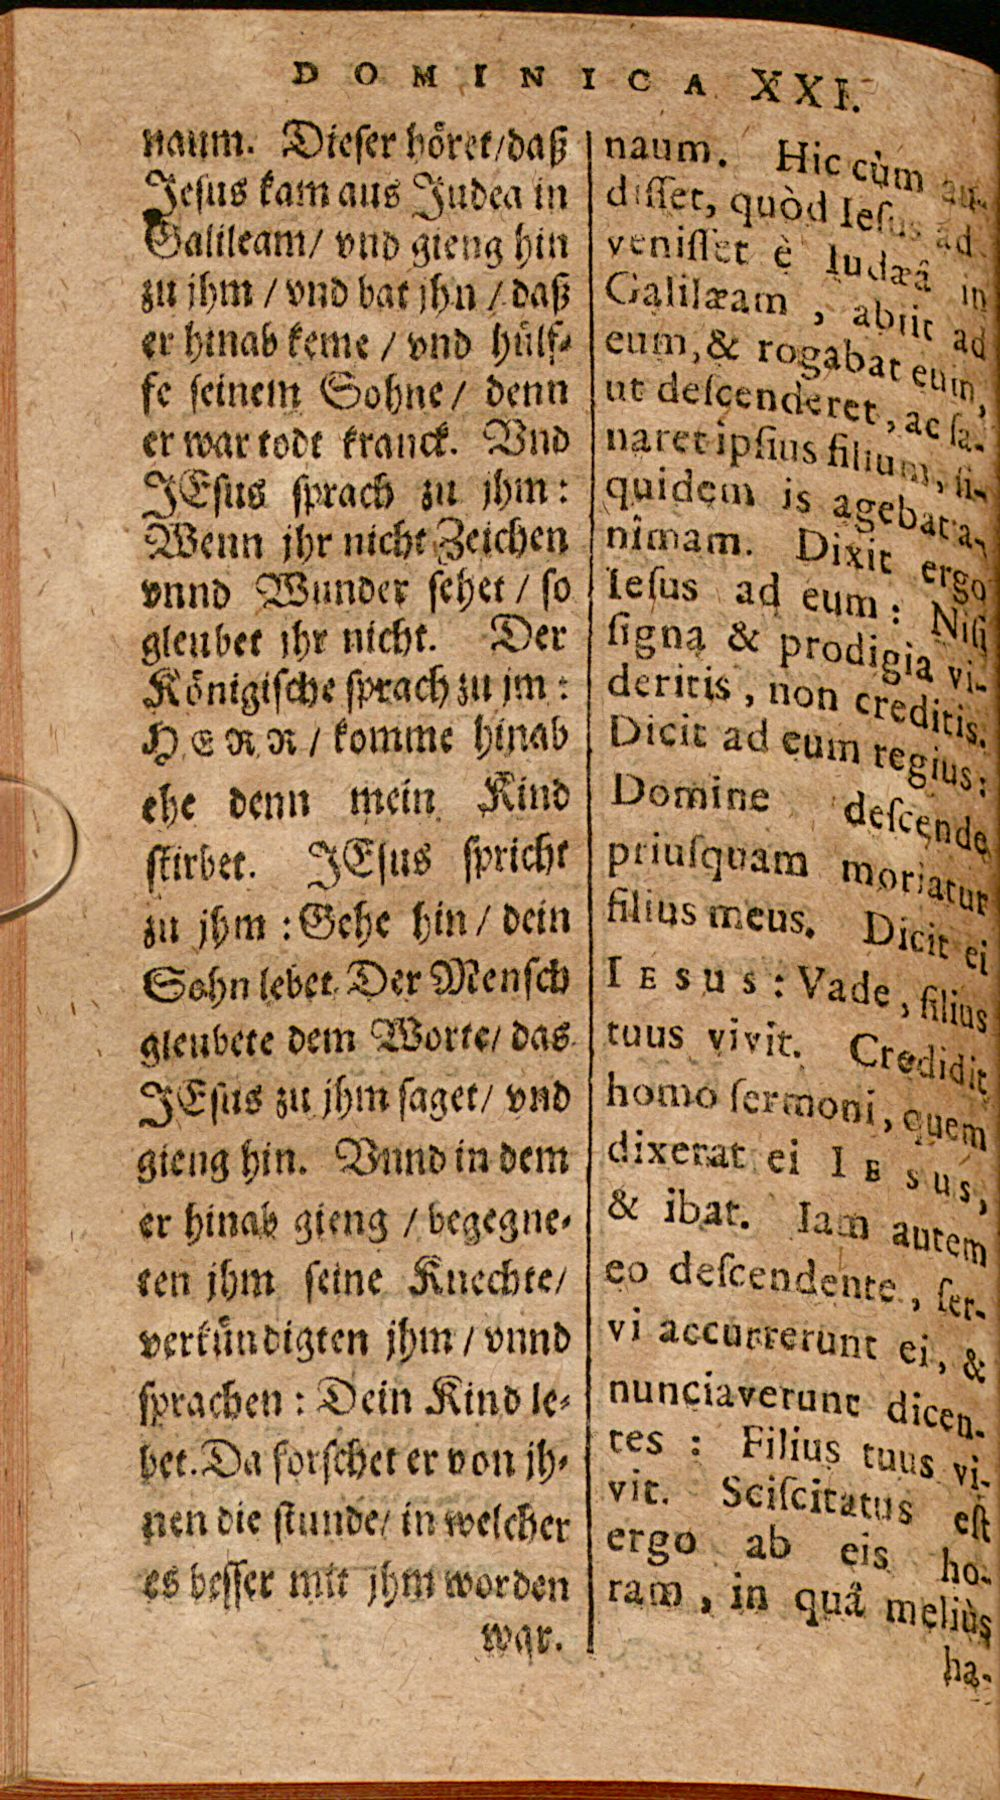 DOMINICA XXI.
naum. Dieser höret/daß
Jesus kam aus Judea in
Galileam/ vnd gieng hin
zu jhm / vnd bat jhn / daß
er hinab keme / vnd hülf-
fe seinem Sohne/ denn
er war todt kranck. Vnd
JEsus sprach zu jhm:
Wenn jhr nicht Zeichen
vnnd Wunder sehet / so
gleubet jhr nicht. Der
Königische sprach zu jm:
HERR / komme hinab
ehe denn mein Kind
stirbet. JEsus spricht
zu jhm : Gehe hin / dein
Sohn lebet. Der Mensch
gleubete dem Worte/ das
JEsus zu jhm saget/ vnd
gieng hin. Vnnd in dem
er hinab gieng / begegne-
ten jhm seine Knechte/
verkündigten jhm / vnnd
sprachen : Dein Kind le-
bet. Da forschet er von jh-
nen die stunde/ in welcher
es besser mit jhm worden
war.
naum. Hic cùm au-
disset, quòd Iesus ad
venisset è Iudæâ in
Galilæam , abiit ad
eum, & rogabat eum,
ut descenderet , ac sa-
naret ipsius filium, si-
quidem is agebat a-
nimam. Dixit ergo
Iesus ad eum : Nisi
signa & prodigia vi-
deritis , non creditis.
Dicit ad eum regius:
Domine descende
priusquam moriatur
filius meus. Dicit ei
IESUS : Vade , filius
tuus vivit. Credidit
homo sermoni , quem
dixerat ei IESUS,
& ibat. Iam autem
eo descendente , ser-
vi accurrerunt ei , &
nunciaverunt dicen-
tes : Filius tuus vi-
vit. Sciscitatus est
ergo ab eis ho-
ram , in quâ meliùs
ha-